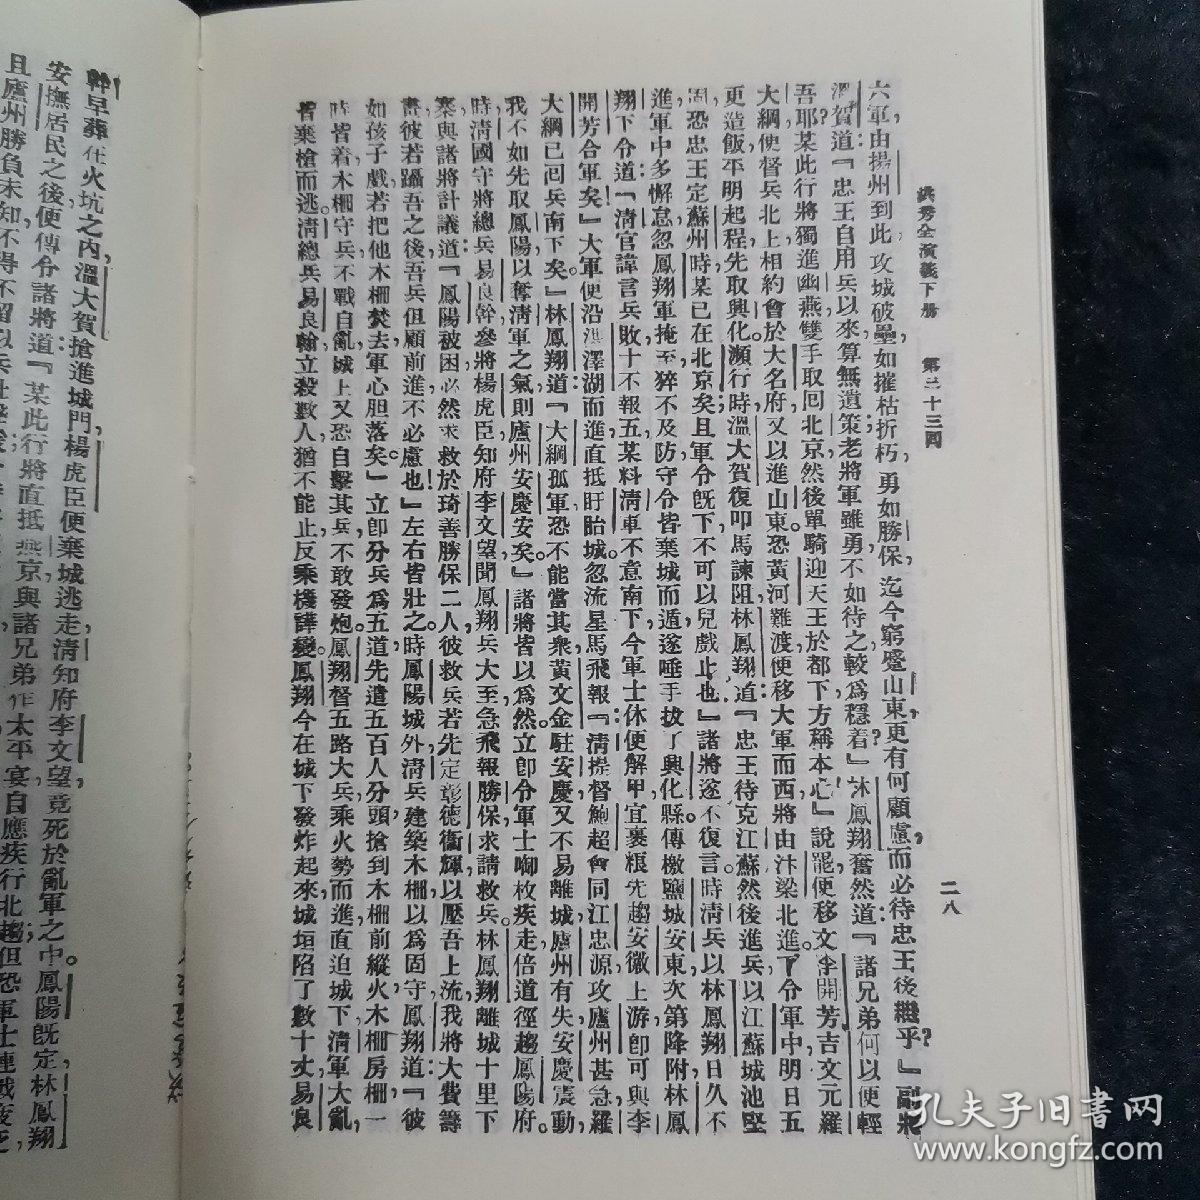 洪秀全演義下册 第三十三囘 二八
六軍,由揚州到此,攻城破壘,如摧枯折朽,勇如勝保,迄今窮蹙山東,更有何顧慮,而必待忠王後繼乎?』副將
溫大賀道:『忠王自用兵以來,算無遺策;老將軍雖勇,不如待之,較爲穩着』林鳳翔奮然道:『諸兄弟何以便輕
吾耶?某此行將獨進幽燕,雙手取囘北京,然後單騎迎天王於都下,方稱本心』說罷,便移文李開芳吉文元羅
大綱,使督兵北上,相約會於大名府。又以進山東,恐黃河難渡,便移大軍而西,將由汴梁北進。下令軍中,明日五
更造飯,平明起程,先取興化。瀕行時,溫大賀復叩馬諫阻。林鳳翔道:『忠王待克江蘇,然後進兵,以江蘇城池堅
固,恐忠王定蘇州時,某已在北京矣。且軍令旣下,不可以兒戲止也』諸將遂不復言。時淸兵以林鳳翔日久不
進,軍中多懈怠,忽鳳翔軍掩至,猝不及防,守令皆棄城而遁,遂唾手拔了興化縣。傳檄鹽城安東,次第降附。林鳳
翔下令道:『淸官諱言兵敗,十不報五,某料淸軍不意南下。今軍士休便解甲,宜裹糧先趨安徽上游,卽可與李
開芳合軍矣!』大軍便沿洪澤湖而進,直抵盱眙城。忽流星馬飛報:『淸提督鮑超會同江忠源攻廬州甚急,羅
大綱已囘兵南下矣。』林鳳翔道:『大綱孤軍,恐不能當其衆,黃文金駐安慶,又不易離城,廬州有失,安慶震動,
我不如先取鳳陽,以奪淸軍之氣,則廬州安慶安矣。』諸將皆以爲然。立卽令軍士啣枚疾走,倍道徑趨鳳陽府。
時淸國守將總兵易良幹,參將楊虎臣,知府李文望,聞鳳翔兵大至,急飛報勝保,求請救兵。林鳳翔離城十里下
寨,與諸將計議道:『鳳陽被困,必然求救於琦善勝保二人,彼救兵若先定彰德衞輝,以壓吾上流,我將大費籌
畫;彼若躡吾之後,吾兵但顧前進,不必慮也!』左右皆壯之。時鳳陽城外,淸兵建築木柵,以爲固守,鳳翔道:『彼
如孩子戲,若把他木柵焚去,軍心胆落矣。』立卽分兵爲五道,先遣五百人分頭搶到木柵前縱火,木柵房柵一
時皆着,木柵守兵不戰自亂,城上又恐自擊其兵,不敢發炮。鳳翔督五路大兵,乘火勢而進,直迫城下,淸軍大亂,
皆棄槍而逃。淸總兵易良幹立殺數人,猶不能止,反乘機譁變。鳳翔今在城下發炸起來,城垣陷了數十丈,易良
幹早葬在火坑之內,溫大賀搶進城門,楊虎臣便棄城逃走,淸知府李文望竟死於亂軍之中。鳳陽旣定,林鳳翔
安撫居民之後,便傳令諸將道:『某此行將直抵燕京,與諸兄弟作太平宴,自應疾行北趨,但恐軍士連戰疲乏,
且廬州勝負未知,不得不留以兵
孔夫子旧書网
www.kongfz.com